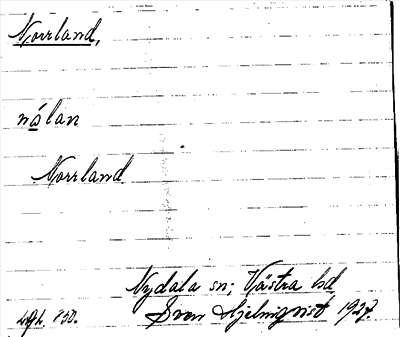 Norrland,
nålan
Norrland.
Nydala sn; Västra hd
Sven Hjelmqvist 1927.